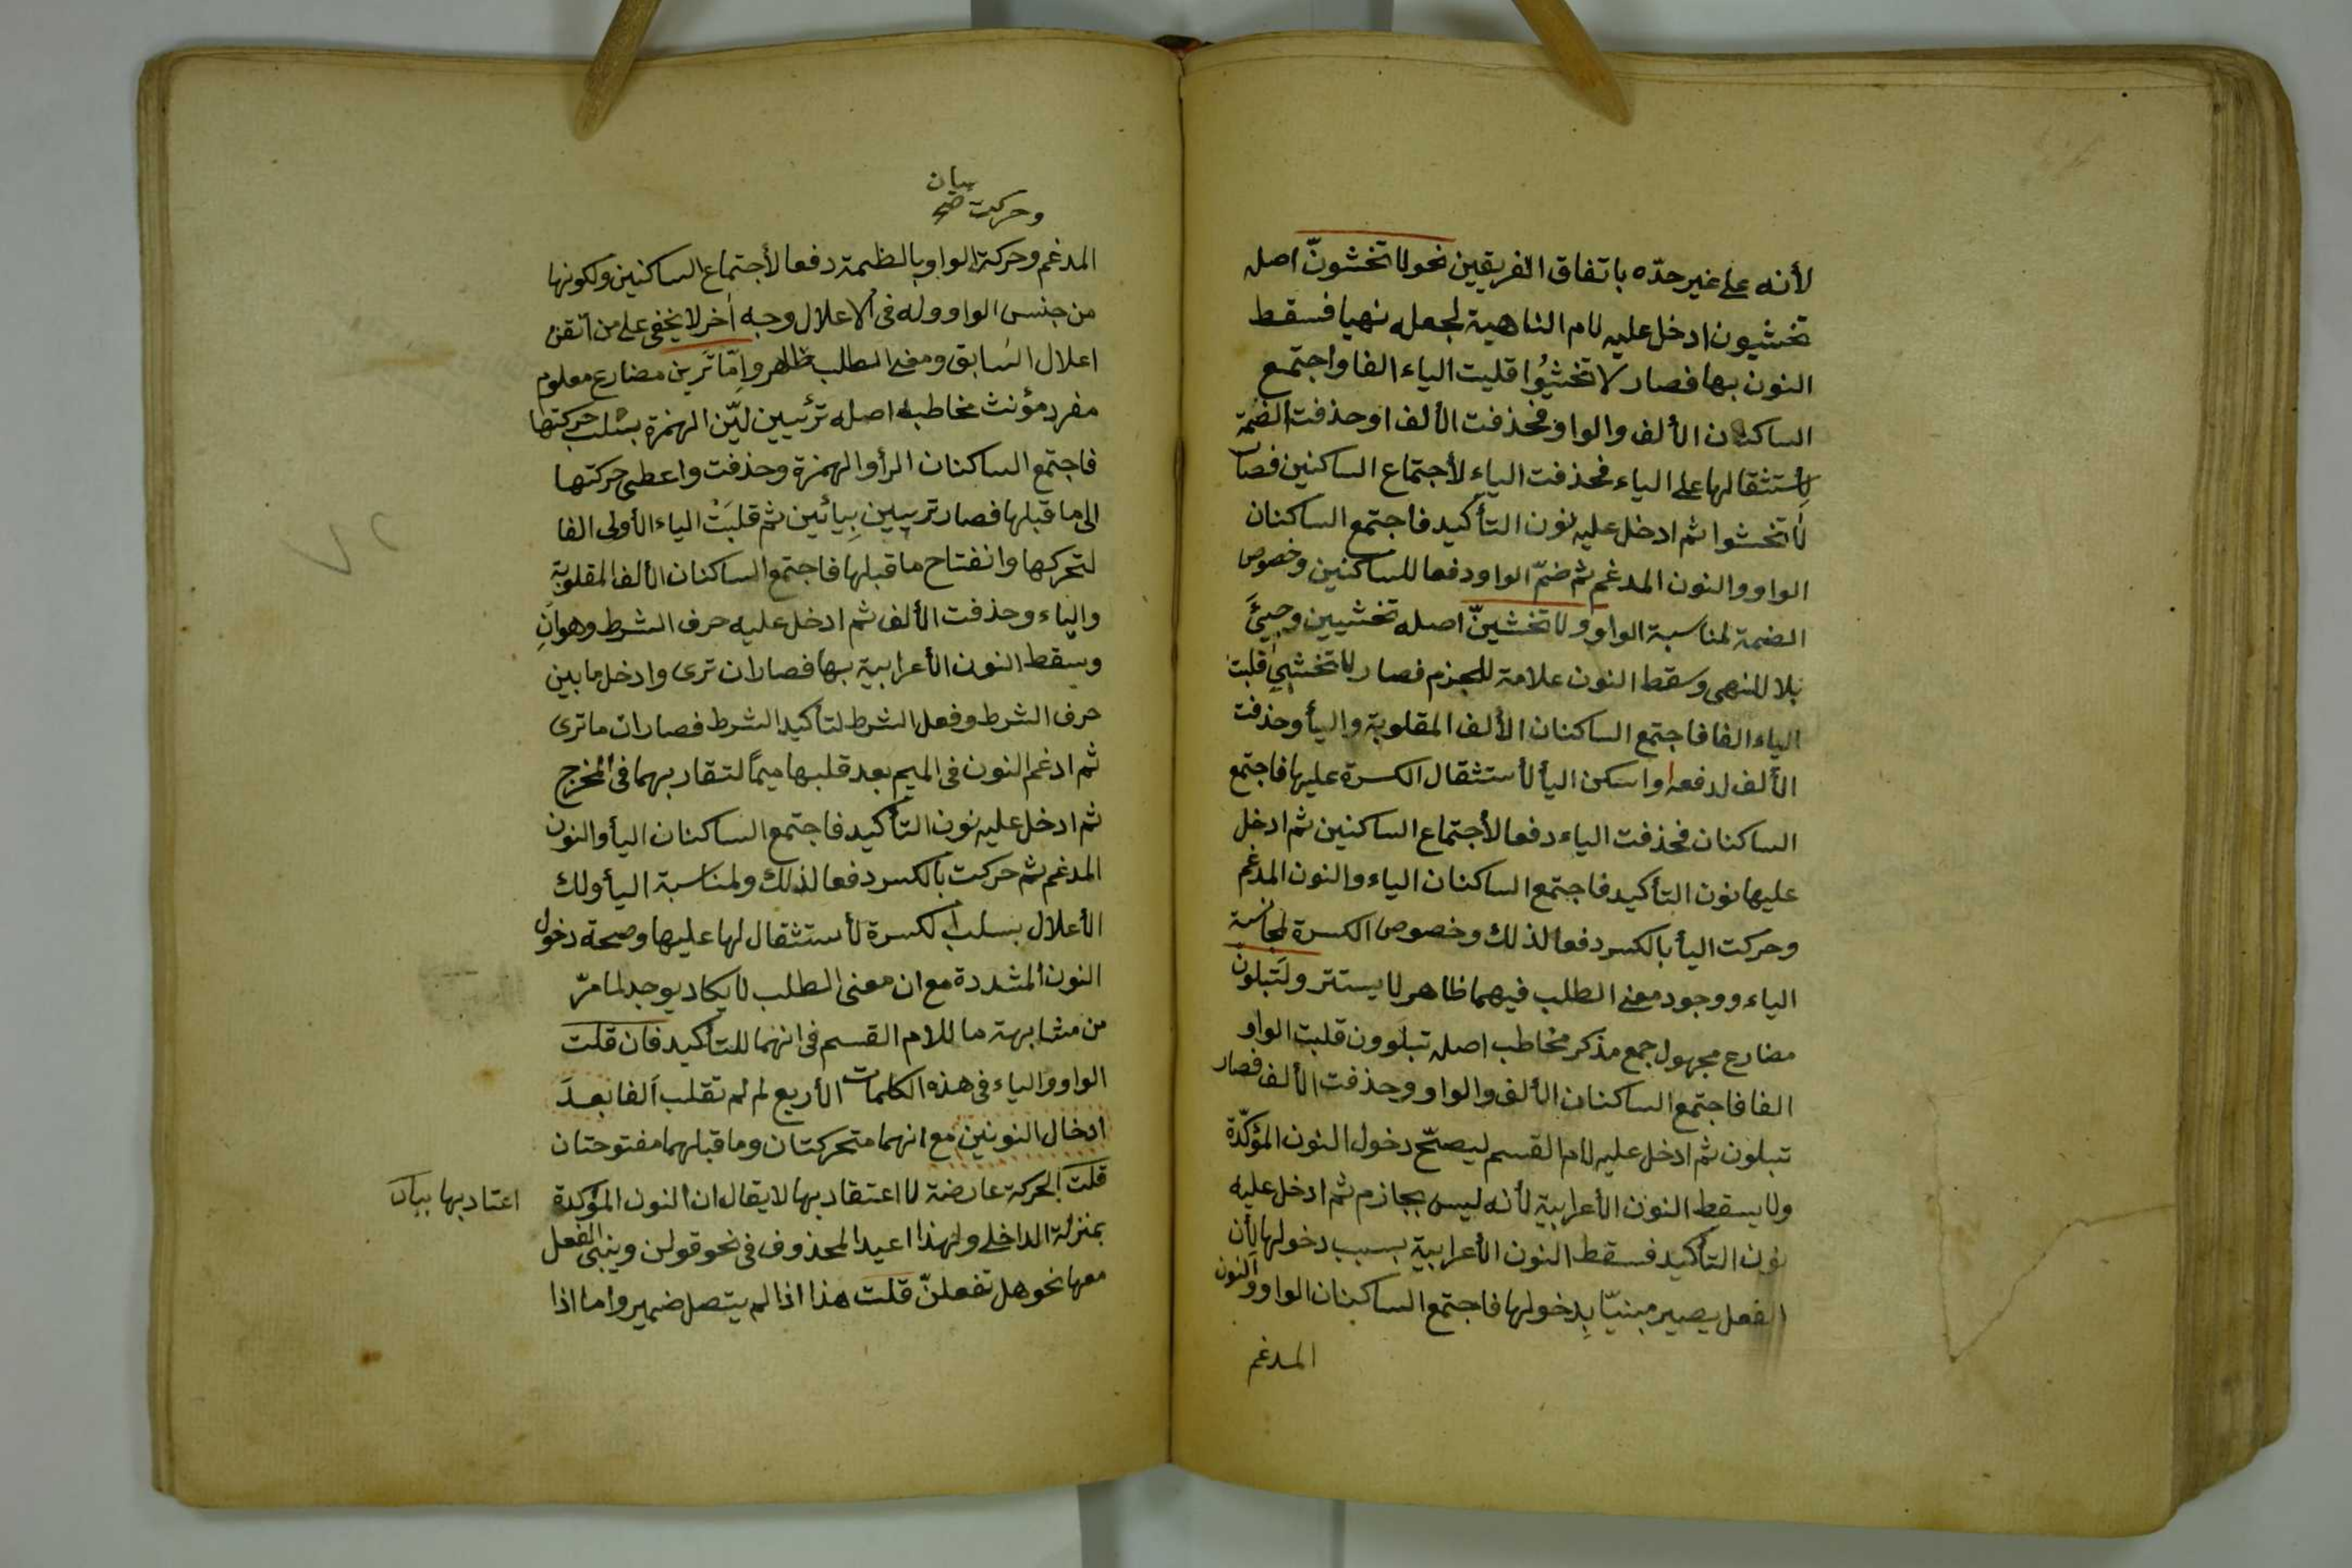 لأنه على غير حدّه باتفاق الفريقين نحو لا تخشونّ اصله
تخشيون ادخل عليه لام الناهية لجعله نهيا فسقط
النون بها فصار لا تخشيُوا قلبت الياء الفا واجتمع
الساكنان الألف والواو فحذفت الألف او حذفت الضمة
لأستثقالها على الياء فحذفت الياء لأجتماع الساكنين فصار
لا تخشوا ثم ادخل عليه نون التأكيد فاجتمع الساكنان
الواو والنون المدغم ثم ضمّ الواو دفعا للساكنين وخصوص
الضمة لمناسبة الواو ولا تخشينّ اصله تخشيين وجيئَ
بلا للنهى وسقط النون علامة للجزم فصار لا تخشيى قلبت
الياء الفا فاجتمع الساكنان الألف المقلوبة واليأ وحذفت
الألف لدفعه او اسكن اليأ لأستثقال الكسرة عليها فاجتمع
الساكنان فحذفت الياء دفعا لأجتماع الساكنين ثم ادخل
عليها نون التأكيد فاجتمع الساكنان الياء والنون المدغم
وحركت اليأ بالكسر دفعا لذلك وخصوص الكسرة لمجانسة
الياء ووجود معنى الطلب فيهما ظاهر لا يستتر ولتبلون
مضارع مجهول جمع مذكر مخاطب اصله تبلوون قلبت الواو
الفا فاجتمع الساكنان الألف والواو وحذفت الألف فصار
تبلون ثم ادخل عليه لام القسم ليصحّ دخول النون المؤكّدة
ولا يسقط النون الأعرابية لأنه ليس بجازم ثم ادخل عليه
نون التأكيد فسقط النون الأعرابية بسبب دخولها لأن
الفعل يصير مبنيّا بدخولها فاجتمع الساكنان الواو والنون
المدغم
بيان
وحركت صح
المدغم وحركة الواو بالظمة دفعا لأجتماع الساكنين ولكونها
من جنس الواو وله فى الاعلال وجه أخر لا يخفى على من اتقن
اعلال السابق ومعنى الطلب ظاهر وامّا ترين مضارع معلوم
مفرد مؤنث مخاطبه اصله ترئيين ليّن الهمزة بسلب حركتها
فاجتمع الساكنان الرأ والهمزة وحذفت واعطى حركتها
الى ما قبلها فصار تريين بيائين ثم قلبت الياء الأولى الفا
لتحركها وانفتاح ما قبلها فاجتمع الساكنان الألف المقلوبة
والياء وحذفت الألف ثم ادخل عليه حرف الشرط وهو انِ
وسقط النون الأعرابية بها فصار ان ترى وادخل ما بين
حرف الشرط وفعل الشرط لتأكيد الشرط فصار ان ما ترى
ثم ادغم النون فى الميم بعد قلبها ميمًا لتقاربهما فى المخرج
ثم ادخل عليه نون التأكيد فاجتمع الساكنان اليأ والنون
المدغم ثم حركت بالكسر دفعا لذلك ولمناسبة اليأ ولك
الأعلال بسلب الكسرة لأستثقال لها عليها وصحة دخول
النون المشددة مع ان معنى الطلب لا يكاد يوجد لما مرّ
من مشابهة ما للام القسم فى انهما للتأكيد فان قلت
الواو والياء فى هذه الكلمات الأربع لم لم تقلب ألفا بعد
ادخال النونين مع انهما متحركتان وما قبلهما مفتوحتان
قلت الحركة عارضة لا اعتقاد بها لا يقال ان النون المؤكدة
اعتاد بها بيان
بمنزلة الداخلى ولهذا اعيد المحذوف فى نحو قولن ويبنى الفعل
معها نحو هل تفعلنّ قلت هذا اذا لم يتصل ضمير واما اذا